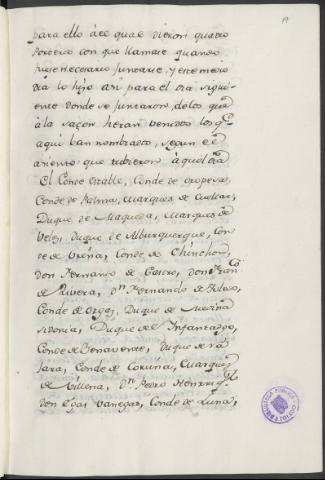 19
para ello a el qual dieron quatro
porteros con que llamase quando
fuese necesario juntarse. y este mesmo
dia lo hizo asi para el dia sigui-
ente donde se juntaron, de los qua
à la saçon heran venidos los q.e
aqui ban nombrados, segun el
asiento que tubieron aquel dia
El Conde estable, Conde de oropesa,
Conde de Palma, Marques de Cuellar,
Duque de Maqueda, Marques de
Velez, Duque de Alburquerque, Con
de de Oreña, Conde de Chinchon,
don Hernando de Castro, don Fran.co
de Rivera, d.n Fernando de Toledo,
Conde de Orgaz, Duque de Medina
sidonia, Duque del Infantadgo,
Conde de Benavente, Duque de Na
jara, Conde de Coruña, Marques
de Villena, d.n Pedro Henrriq.z
don Egas Vanegas, Conde de Luna,
BIBLIOTECA PUBLICA
TOLEDO